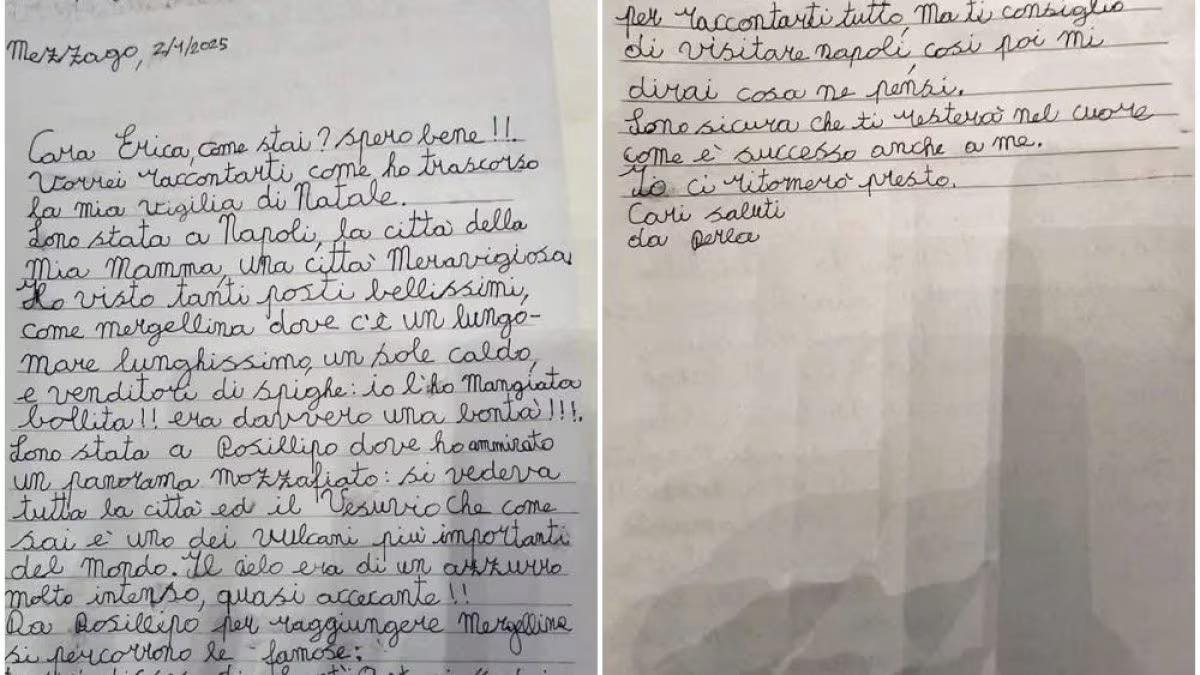 Mezzago, 2/1/2025
Cara Erica, come stai? spero bene!!
Vorrei raccontarti come ho trascorso
la mia vigilia di Natale.
Sono stata a Napoli, la città della
mia mamma, una città meravigiosa.
Ho visto tanti posti bellissimi,
come mergellina dove c'è un lungo-
mare lunghissimo, un sole caldo,
e venditori di spighe: io l'ho mangiata
bollita!! era davvero una bontà!!!.
Sono stata a Posillipo dove ho ammirato
un panorama mozzafiato: si vedeva
tutta la città ed il Vesuvio che come
sai è uno dei vulcani più importanti
del mondo. Il cielo era di un azzurro
molto intenso, quasi accecante!!
Da Posillipo per raggiungere Mergellina
si percorrono le famose:
per raccontarti tutto ma ti consiglio
di visitare napoli, così poi mi
dirai cosa ne pensi.
Sono sicura che ti resterà nel cuore
come è successo anche a me.
Io ci ritornerò presto.
Cari saluti
da Perla